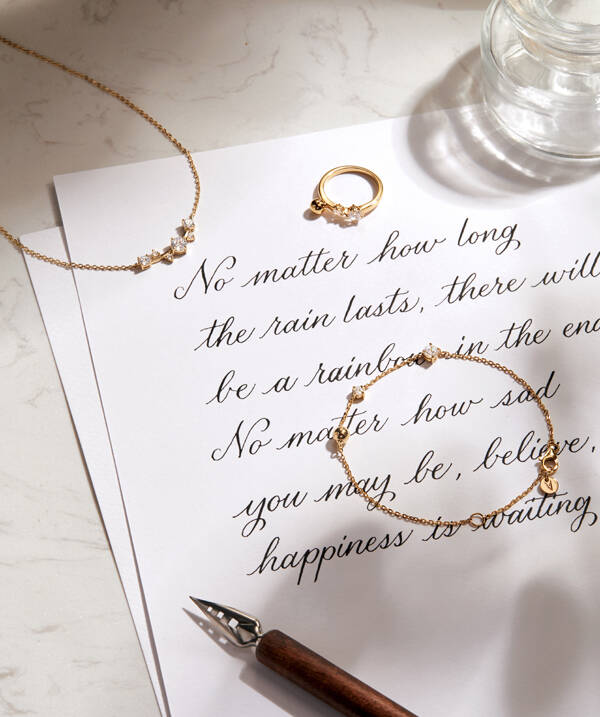 No matter how long
the rain lasts, there will
be a rainbow in the end
No matter how sad
you may be, believe,
happiness is waiting